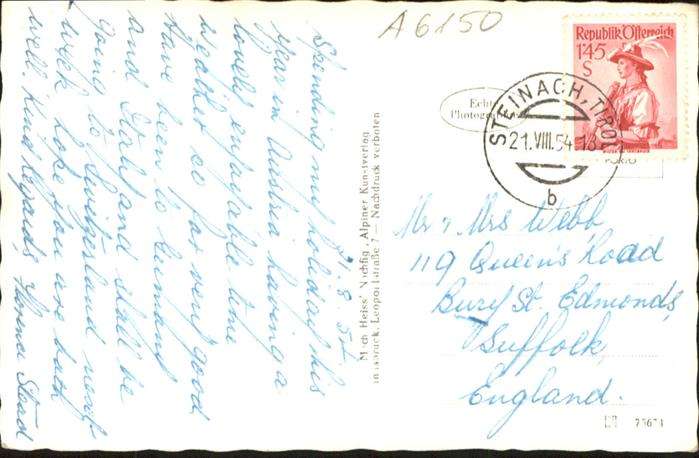 A6150
21.8.54.
Spending my holiday this
year in Austria having a
lovely enjoyable time
weather so far very good
have been to Germany
and Italy and shall be
going to Switzerland next
week hope you are back
well. Kind Regards Norma Stead
Mich Heiss' Nachflg „Alpiner Kunstverlag
Innsbruck, Leopoldstraße 7 — Nachdruck verboten
Echte
Republik Österreich
1'45
S
PORTO
STEINACH, TIROL
21.VIII.54-18
b
Mr & Mrs Webb,
119 Queen's Road
Bury St. Edmonds,
Suffolk,
England.